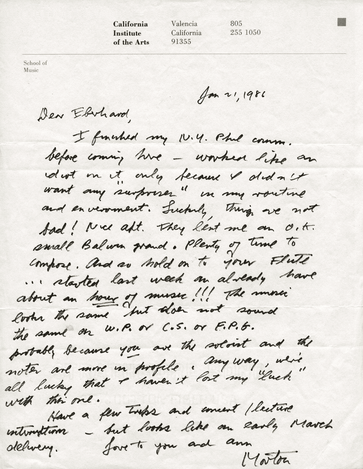 California
Institute
of the Arts
Valencia
California
91355
805
255 1050
School of
Music
Jan 21, 1986
Dear Eberhard,
I finished my N.Y. Phil comm.
before coming here – worked like an
idiot on it only because I didn't
want any "surprises" in my routine
and enviroment. Luckily, things are not
bad! Nice apt. They lent me an O.K.
small Balwin grand. Plenty of time to
compose. And so hold on to your Flute
... started last week an already have
about an hour of music!!! The music
looks the same but does not sound
the same as W.P. or C.S. or F.P.G.
probably because you are the soloist and the
notes are more in profile. Anyway, we're
all lucky that I haven't lost my "luck"
with this one.
Have a few trips and concert/lecture
– but looks like an early March
delivery.
Love to you and ann
Morton